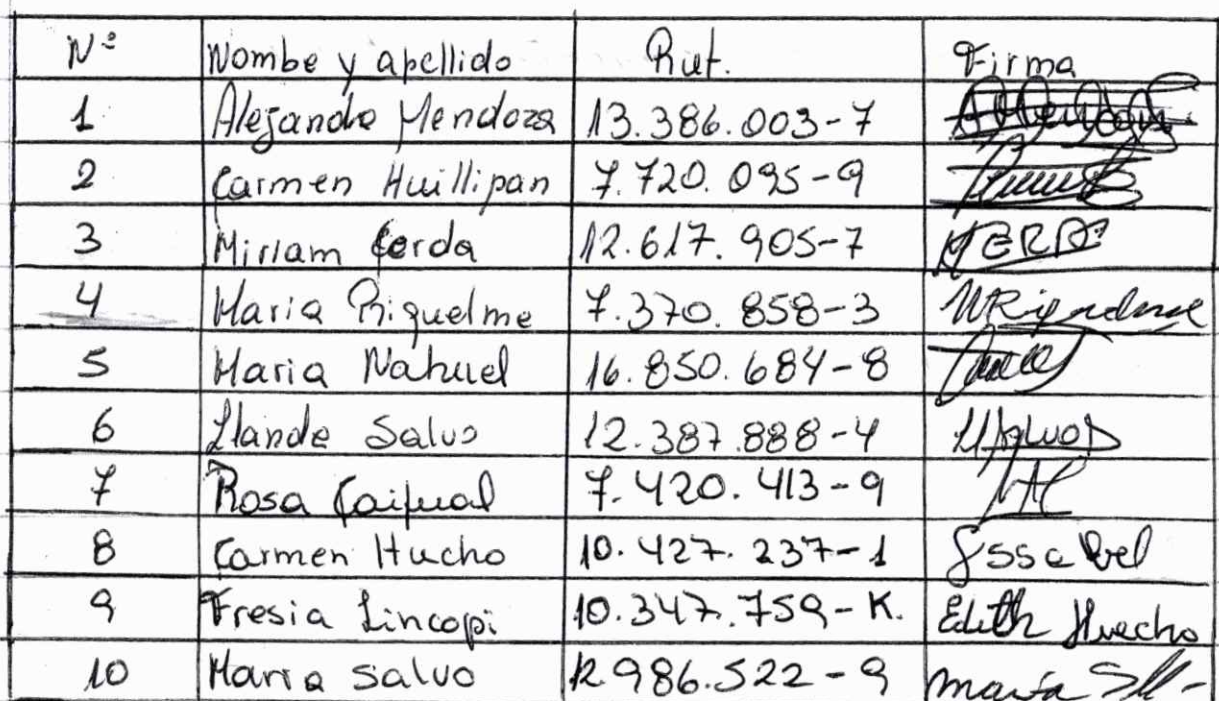 Nº Nombe y apellido Rut. Firma
1 Alejando Mendoza 13.386.003-7
2 Carmen Huillipan 7.720.095-9
3 Miriam Cerda 12.617.905-7
4 Maria Riquelme 7.370.858-3 MRiquelme
5 Maria Nahuel 16.850.684-8
6 Llande Salvo 12.387.888-4
7 Rosa 7.420.413-9
8 Carmen Hucho 10.427.237-1
9 Fresia Lincopi 10.347.759-K. Edith Huecho
10 Maria Salvo 12.986.522-9 maria